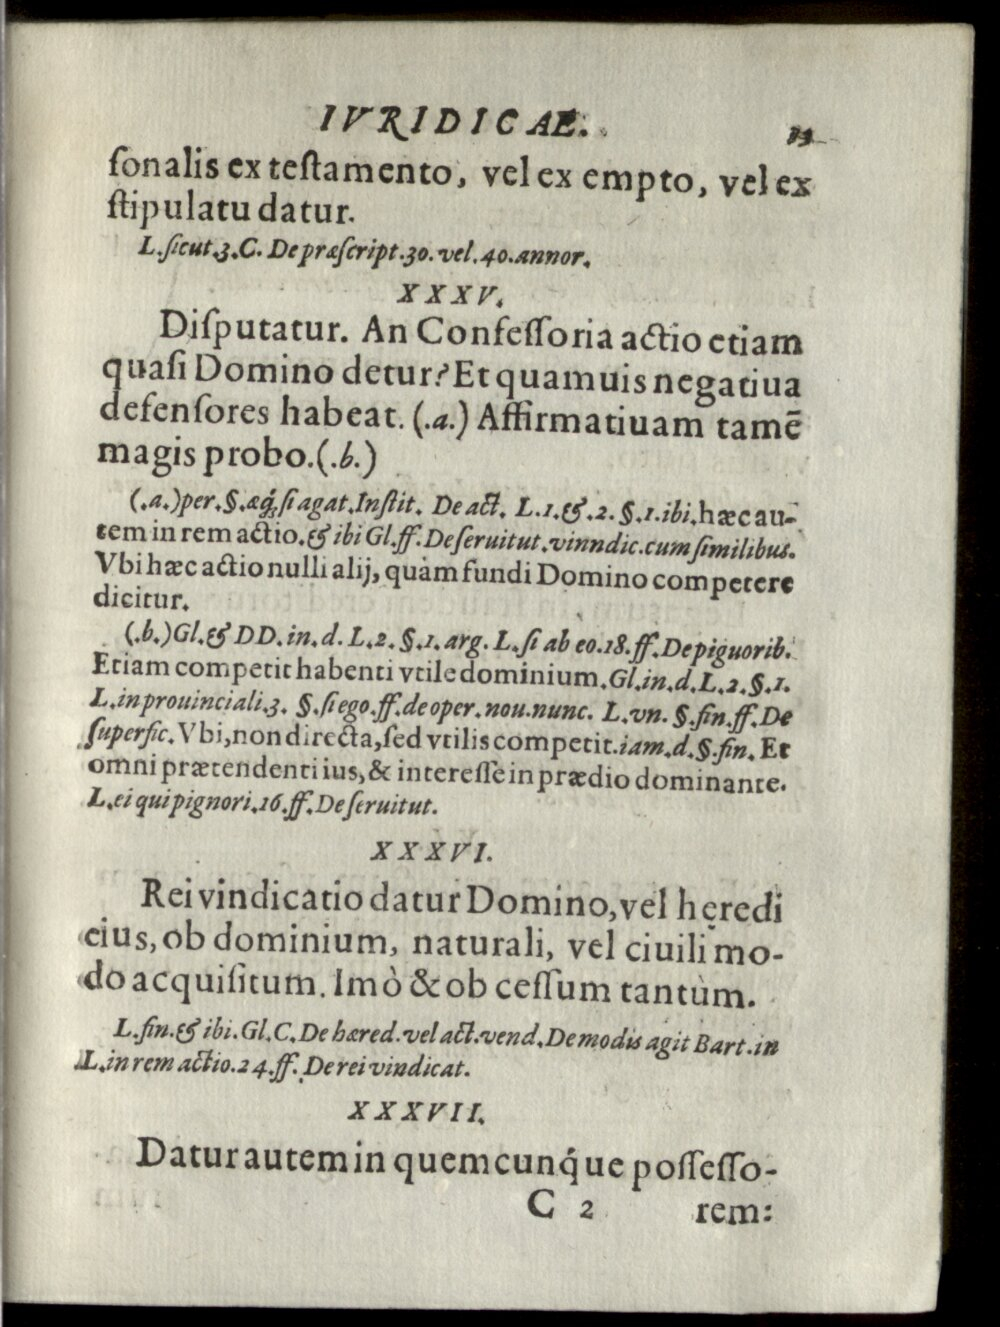 IVRIDICAE.
sonalis ex testamento, vel ex empto, vel ex
stipulatu datur.
L.sicut.3.C. De præscript.30.vel.40.annor.
XXXV.
Disputatur. An Confessoria actio etiam
quasi Domino detur? Et quamuis negatiua
defensores habeat. (.a.) Affirmatiuam tamẽ
magis probo.(.b.)
(.a.)per.§.æq́;si agat.Instit. De act. L.1.&.2.§.1.ibi,hæc au-
tem in rem actio.& ibi Gl.ff.De seruitut.vinndic.cum similibus.
Vbi hæc actio nulli alij, quàm fundi Domino competere
dicitur.
(.b.)Gl.& DD.in.d.L.2.§.1.arg.L.si ab eo.18.ff.De piguorib.
Etiam competit habenti vtile dominium.Gl.in.d.L.2.§.1.
L.in prouinciali.3. §.si ego.ff.de oper.nou.nunc. L.vn.§.fin.ff.De
superfic.Vbi,non directa,sed vtilis competit.iam.d.§.fin. Et
omni prætendenti ius,& interesse in prædio dominante.
L.ei qui pignori.16.ff.De seruitut.
XXXVI.
Rei vindicatio datur Domino,vel hęredi
eius, ob dominium, naturali, vel ciuili mo-
do acquisitum. Imò & ob cessum tantùm.
L.fin.& ibi.Gl.C.De hæred.vel act.vend.De modis agit Bart.in
L.in rem actio.24.ff.De rei vindicat.
XXXVII.
Datur autem in quemcunq́ue possesso-
C 2 rem: